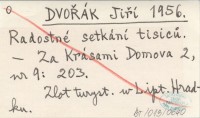 DVOŘÁK Jiří 1956.
Radostné setkání tisíců.
— Za Krásami Domova 2,
nr 9: 203.
Zlot turyst. w Lipt. Hrad-
ku.